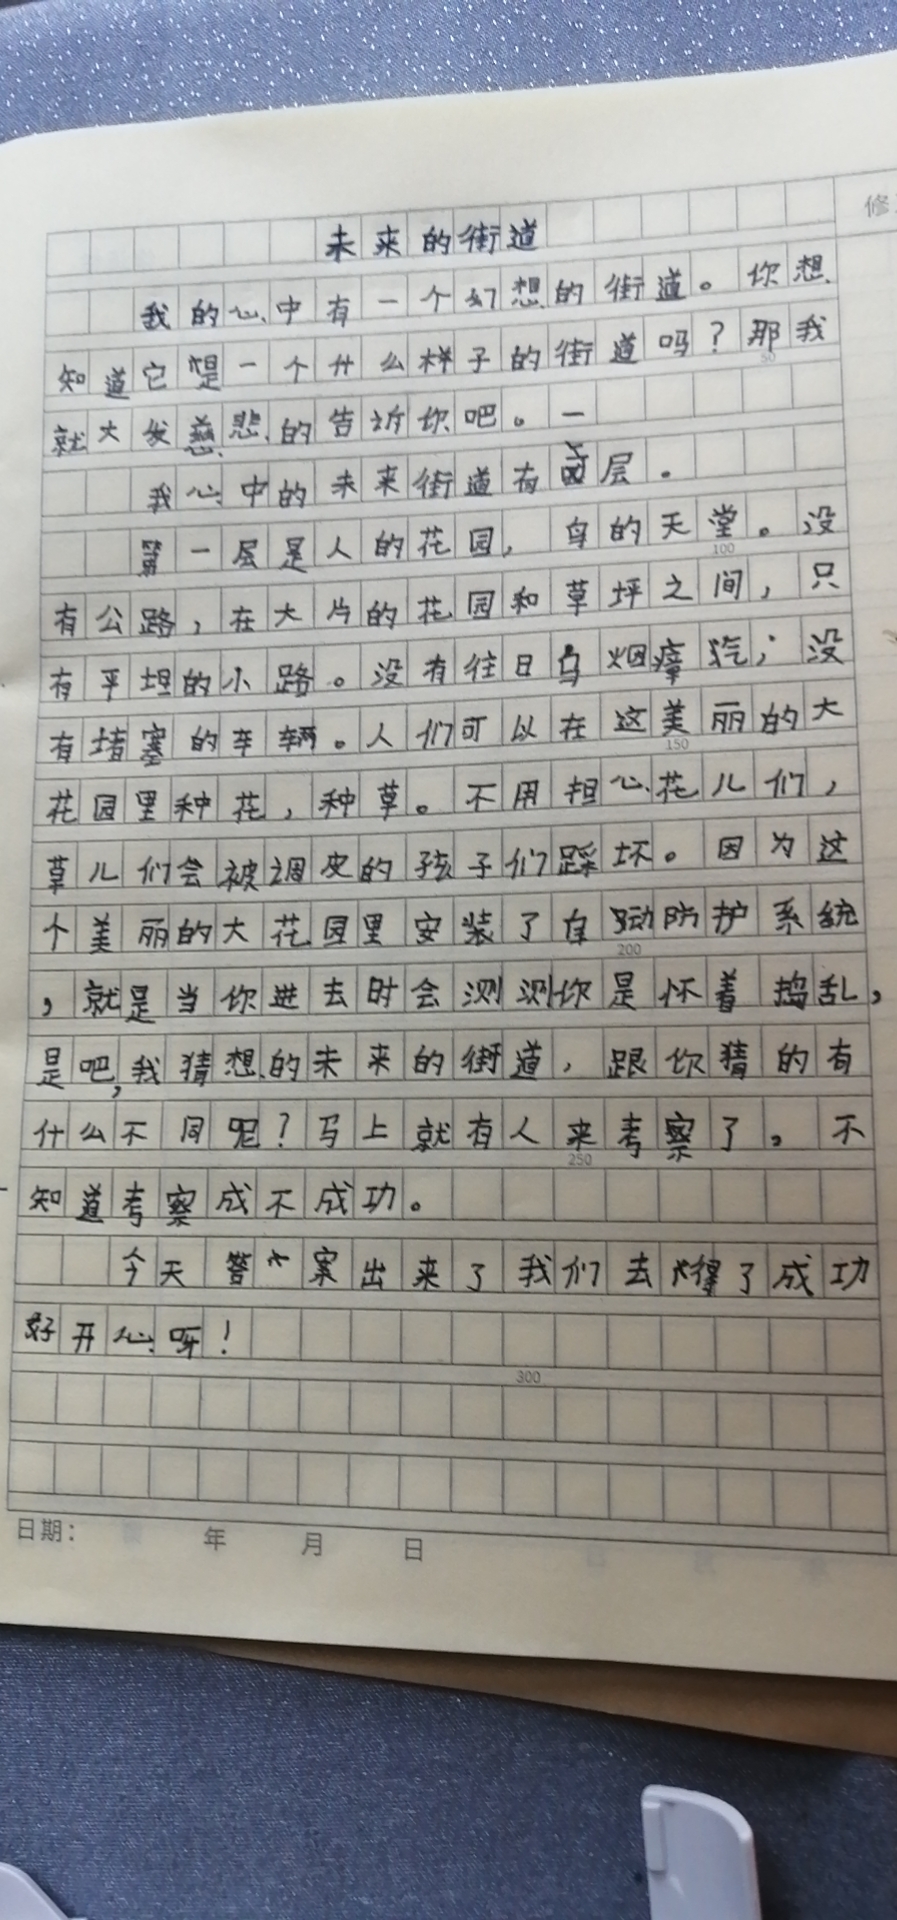 修
未来的街道
我的心中有一个幻想的街道。你想
知道它是一个什么样子的街道吗？那我
50
就大发慈悲的告诉你吧。一
我心中的未来街道有层。
第一层是人的花园，鸟的天堂。没
100
有公路，在大片的花园和草坪之间，只
有平坦的小路。没有往日乌烟瘴汽；没
有堵塞的车辆。人们可以在这美丽的大
150
花园里种花，种草。不用担心花儿们，
草儿们会被调皮的孩子们踩坏。因为这
个美丽的大花园里安装了自动防护系统
200
，就是当你进去时会测测你是怀着捣乱，
是吧，我猜想的未来的街道，跟你猜的有
什么不同呢？马上就有人来考察了。不
250
知道考察成不成功。
今天答案出来了我们去得了成功
好开心呀！
300
日期： 年 月 日